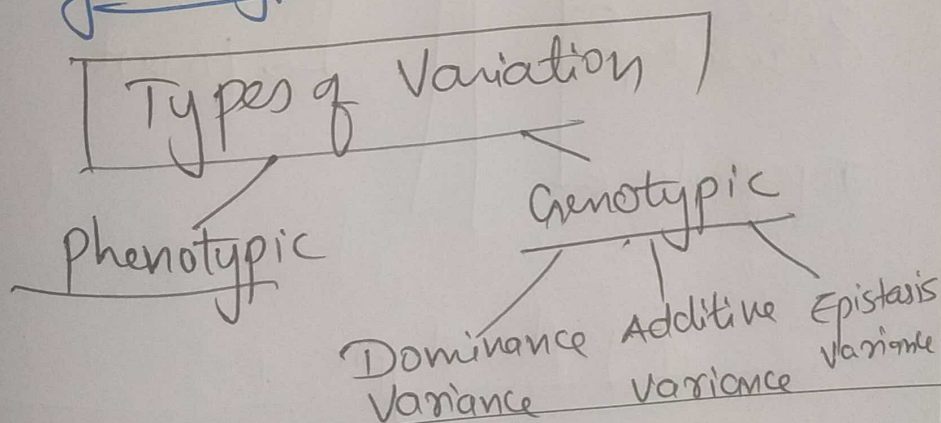 Types of Variation
Phenotypic
Genotypic
Dominance Variance
Additive Variance
Epistasis Variance